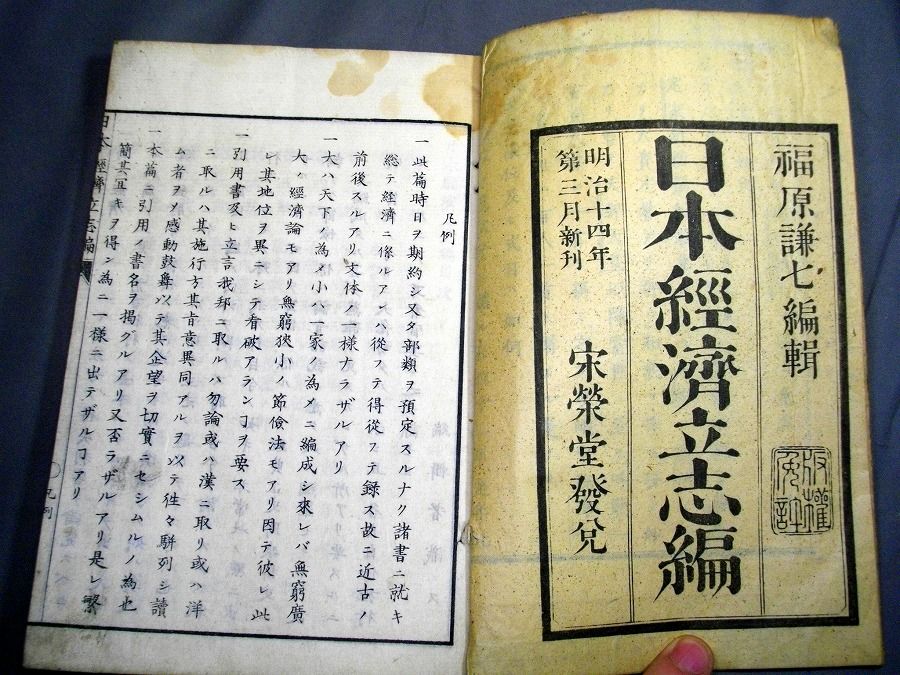 福原謙七編輯
版權免許
日本經濟立志編
明治十四年
第三月新刊
宋榮堂發兌
凡例
一此篇時日ヲ期約シ又タ部類ヲ預定スルナク諸書ニ就キ
總テ経済ニ係ルアレハ從フテ得從フテ録ス故ニ近古ノ
前後スルアリ文体ノ一様ナラザルアリ
一大ハ天下ノ為メ小ハ一家ノ為メニ編成シ來レバ無窮廣
大ノ經濟論モアリ無窮狹小ノ節儉法モアリ因テ彼レ此
レ其地位ヲ異ニシテ看破アランヿヲ要ス
一引用書及ヒ立言我邦ニ取ルハ勿論或ハ漢ニ取リ或ハ洋
ニ取ルハ其施行方其旨意異同アルヲ以テ徃々駢列シ讀
ム者ヲメ感動鼓舞以テ其企望ヲ切實ニセシムルノ為也
一本篇ニ引用ノ書名ヲ掲グルアリ又否ラザルアリ是レ繁
簡其宜キヲ得ン為ニ一様ニ出テザルヿアリ
日本經濟立志編
凡例